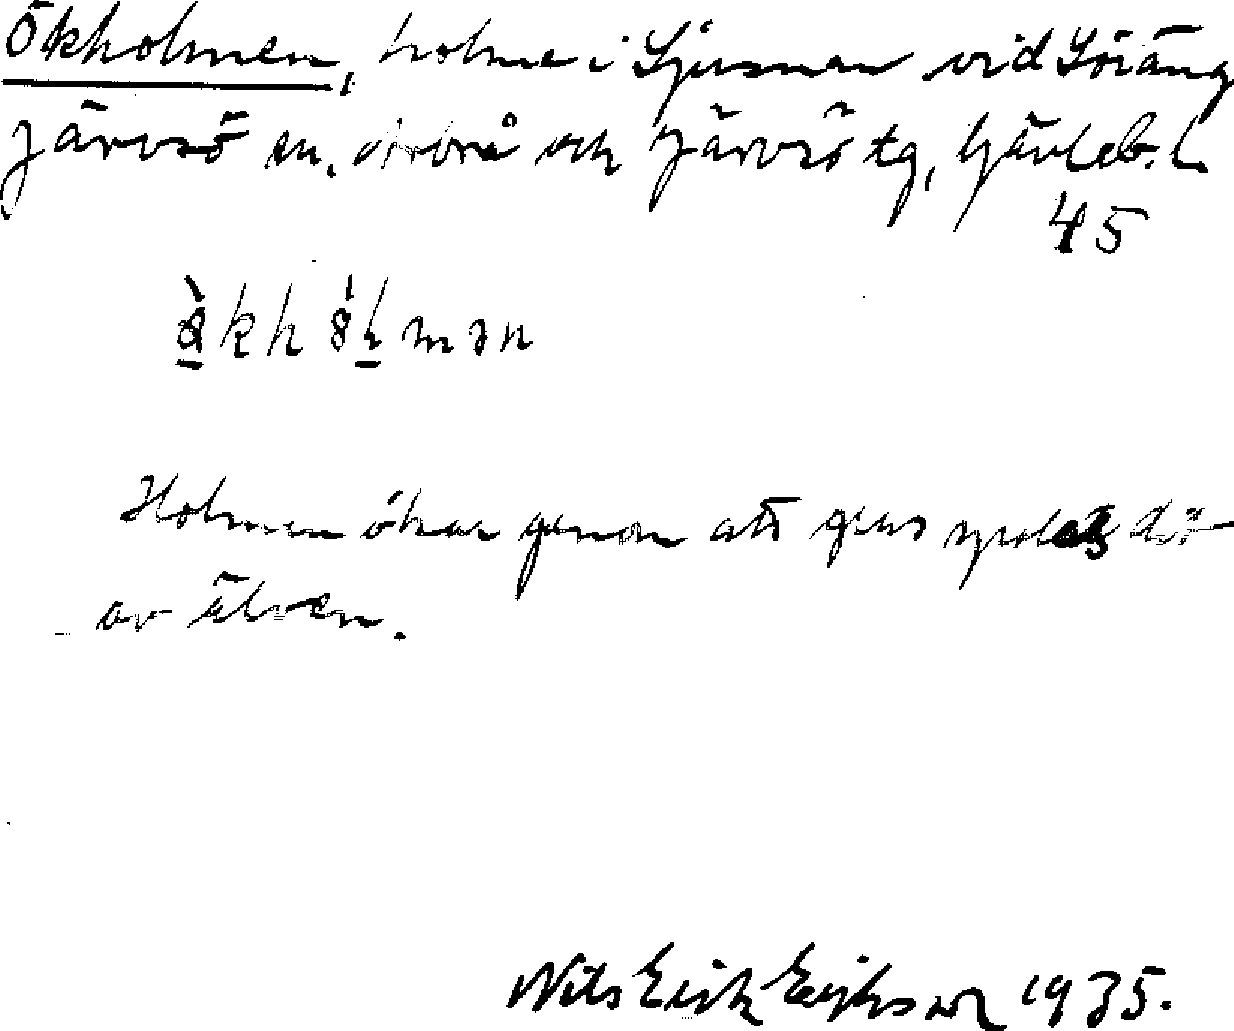 Ökholmen, holme i Ljusnan vid Söräng
Järvsö sn. Arbrå och Järvsö tg, Gävleb. l.
45
Holmen ökar genom att grus spolas dit
av älven.
Nils Erik Eriksson 1935.